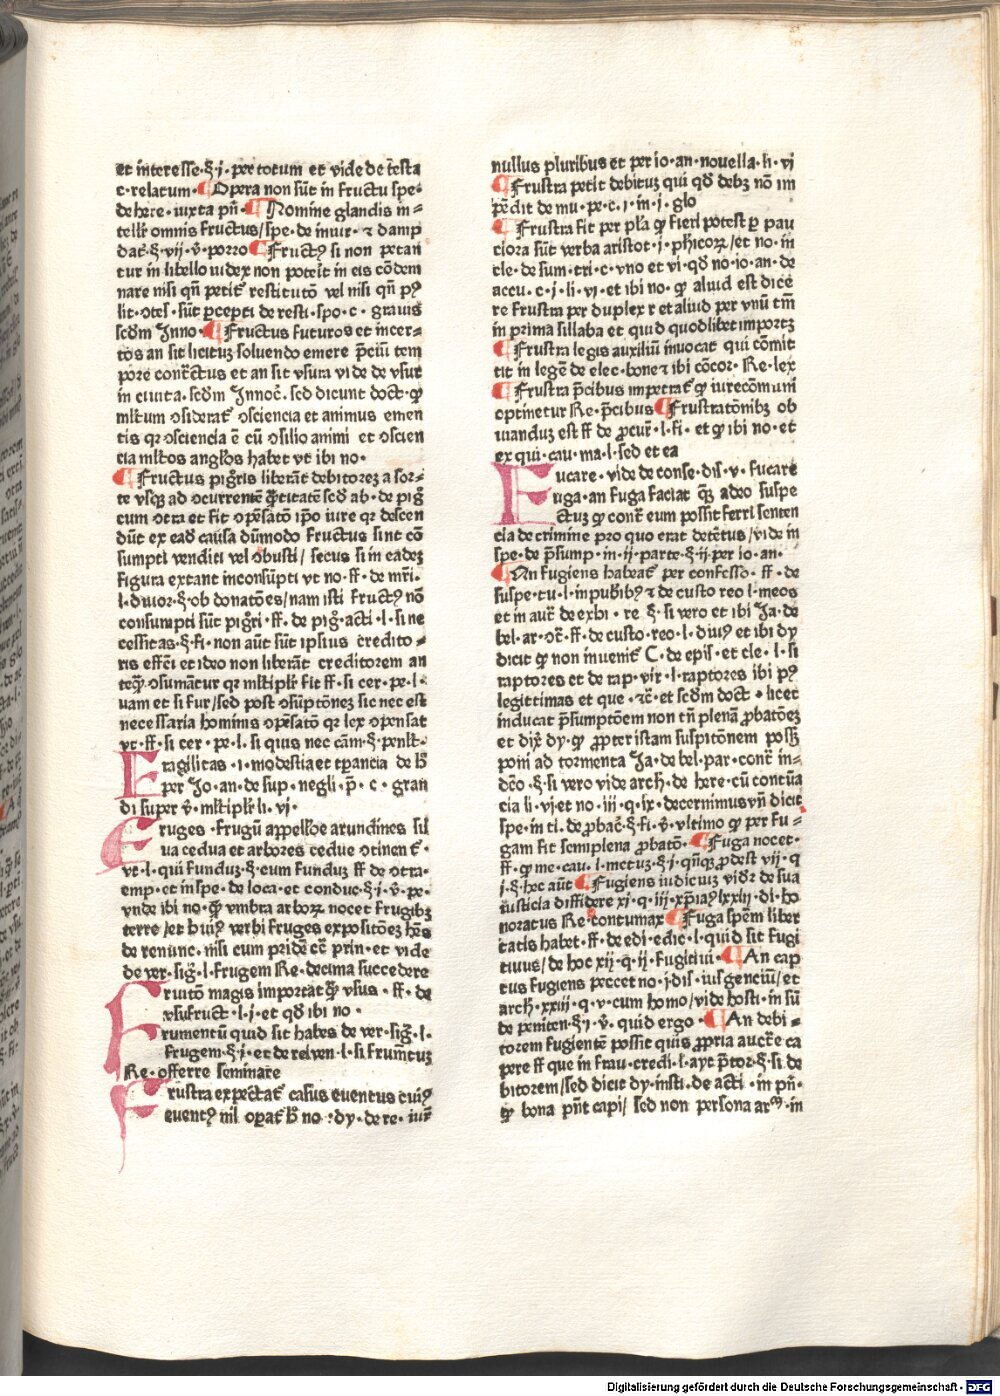 et interesse·§·j·per totum et vide de testa
c·relatum·¶Opera non sūt in fructu spe⸗
de here·iuxta pñ·¶Nomine glandis in⸗
tellr̄ omnis fructus/spe·de inuir·⁊ damp
dat̄·§·vij·v̄·porro¶Fructꝰ si non petan
tur in libello iudex non potest in eis cōdem
nare nisi qn̄ petit̄ restitutō vel nisi qn̄ pꝰ
lit·ōtes·sūt ꝑcepti de resti·spo·c·grauis
scd̄m Inno·¶Fructus futuros et incer⸗
tos an sit licituȝ soluendo emere p̄ciū tem
pore cont̄ctus et an sit vsura vide de vsur̄
in ciuita·scd̄m Innoc̄·sed dicunt doct̄·ꝙ
ml̄tum ↄsiderat̄ ↄsciencia et animus emen
tis qr ↄsciencia ē cū ↄsilio animi et ↄscien
cia ml̄tos angl̄os habet vt ibi no·
¶Fructus pigr̄is liberāt debitoreȝ a sor⸗
te vsqȝ ad ↄcurrentē q̄titatē scd̄ ab·de piḡ
cum ↄtra et fit ↄpēsatō ip̄o iure qr descen
dūt ex ead̄ causa dūmodo fructus sint cō
sumpti venditi vel ↄbusti/ secus si in eadeȝ
figura extant inconsūpti vt no·ff·de mr̄i·
l·diuor·§·ob donatōes/nam isti fructꝰ nō
consumpti sūt pigr̄i·ff·de piḡ·acti·l·si ne
cessitas·§·fi·non aūt sūt ipsius credito⸗
ris eff̄ci et ideo non liberāt creditorem an
teq̄ ↄsumātur qr ml̄tiplr̄ fit ff·si cer·pe·l·
uam et si fur/sed post ↄsūptōneȝ sic nec est
necessaria hominis ↄpēsatō qr lex ↄpensat
vt·ff·si cer·pe·l·si quis nec cām·§·penl̄t·
Fragilitas·i·modestia et tꝑancia de b̄
per Jo·an·de sup·negli·p̄·c·gran
di super v̄·ml̄tiplr̄ li·vi·
Fruges·frugū appellōe arundīnes sil
ua cedua et arbores cedue ↄtinent̄·
vt·l·qui funduȝ·§·cum funduȝ ff de ↄtra·
emp·et in spe·de loca·et conduc·§·j·v̄·pe·
vnde ibi no·ꝙ vmbra arboꝝ nocet frugibȝ
terre/et huiꝰ verbi fruges expositōeȝ hēs
de renunc·nisi cum pridē cē prin·et vide
de ver·siḡ·l·frugem Re·decima succedere
Fruitō magis importat q̄ vsus·ff·de
vsufruct·l·j·et qd̄ ibi no·
Frumentū quid sit habes de ver·siḡ·l·
frugem·§·j·et de rei ven·l·si frumētuȝ
Re·offerre seminare
Frustra expectat̄ casus euentus cuiꝰ
euentꝰ nil oꝑat̄ b̄ no:dy·de re·iur̄
nullus pluribus et per io·an·nouella·li·vi
¶Frustra petit debituȝ qui qd̄ debȝ nō im
pēdit de mu·pe·c·i·in·j·glo
¶Frustra fit per pl̄a ꝙ fieri potest ꝑ pau
ciora sūt verba aristot·j·phicoꝝ/et no·in
cle·de sum·tri·c·vno et vi·qd̄ no·io·an·de
accu·c·j·li·vi·et ibi no·ꝙ aliud est dice
re frustra per duplex r et aliud per vnū tm̄
in prima sillaba et quid quodlibet importȝ
¶Frustra legis auxiliū inuocat qui cōmit
tit in legē de elec·bone ⁊ ibi cōcor·Re·lex
¶Frustra p̄cibus impetrat̄ ꝙ iure cōmuni
optinetur Re·p̄cibus¶Frustratōnibȝ ob
uianduȝ est ff de ꝓcur̄·l·fi·et ꝙ ibi no·et
ex qui·cau·ma·l·sed et ea
Fucare·vide de conse·dis·v·fucare
Fuga·an fuga faciat q̄ȝ adeo suspe
ctuȝ ꝙ cont̄ eum possit ferri senten
cia de crimine pro quo erat detētus/vide in
spe·de p̄sump·in·ij·parte·§·ij·per io·an·
¶An fugiens habeat̄ per confesso·ff·de
suspe·tu·l·inpub̄ibȝ ⁊ de custo reo l·meos
et in aut̄ de exhi·re §·si vero et ibi Ja·de
bel·ar·oc̄·ff·de custo·reo·l·diuiꝰ et ibi dy
dicit ꝙ non inuenit̄ C·de epis·et cle·l·si
raptores et de rap·vir·l·raptores ibi pꝰ
legittimas et que·⁊c̄·et scd̄m doct·licet
inducat p̄sumptōem non tn̄ plenā ꝓbatōeȝ
et dix̄ dy·ꝙ ꝓpter istam suspitōnem possȝ
poni ad tormenta Ja·de bel·par·cont̄ in⸗
dc̄o·§·si vero vide arch·de here·cū contūa
cia li·vj·et no·iij·q·ix·decernimus vn̄ dicit
spe·in ti·de ꝓbac̄·§·fi·v̄·vltimo ꝙ per fu⸗
gam fit semiplena ꝓbatō·¶Fuga nocet·
ff·ꝙ me·cau·l·metuȝ·§·j·qn̄qȝ ꝓdest vij·q
j·§·hoc aūt¶Fugiens iudiciuȝ vid̄r de sua
iusticia diffidere xj·q·iij·xp̄iaꝰ lxxiij·di·ho
noratus Re·contumax¶Fuga spēm liber
tatis habet·ff·de edi·edic·l·quid sit fugi
tiuus/de hoc xij·q·ij·fugitiui·¶An cap
tus fugiens peccet no·j·dis·ius genciū/et
arch·xxiij·q·v·cum homo/vide hosti·in sū
de peniten·§·j·v̄·quid ergo·¶An debi⸗
torem fugientē possit quis ꝓpria auctr̄e ca
pere ff que in frau·credi·l·ayt p̄tor·§·si de
bitorem/sed dicit dy·insti·de acti·in pn̄·
ꝙ bona pn̄t capi/ sed non persona arᵐ·in
Digitalisierung gefördert durch die Deutsche Forschungsgemeinschaft - DFG